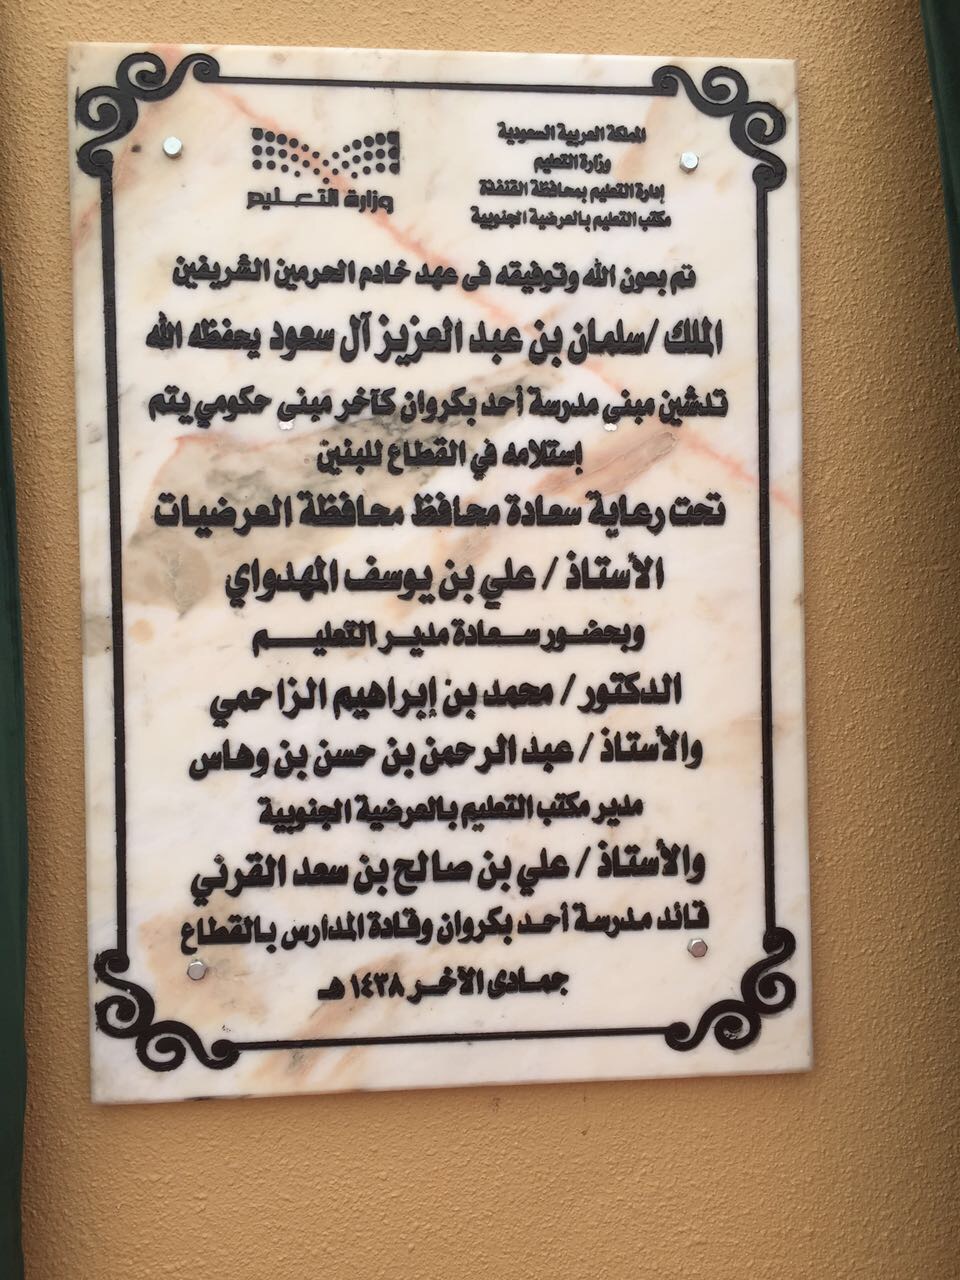 المملكة العربية السعودية
وزارة التعليم
إدارة التعليم بمحافظة القنفذة
مكتب التعليم بالعرضية الجنوبية
وزارة التعليم
تم بعون الله وتوفيقه فى عهد خادم الحرمين الشريفين
الملك /سلمان بن عبد العزيز آل سعود يحفظه الله
تدشين مبني مدرسة أحد بكروان كآخر مبني حكومي يتم
إستلامه في القطاع للبنين
تحت رعاية سعادة محافظ محافظة العرضيات
الأستاذ / علي بن يوسف المهدواي
وبحضور سعادة مدير التعليم
الدكتور / محمد بن إبراهيم الزاحمي
والأستاذ / عبد الرحمن بن حسن بن وهاس
مدير مكتب التعليم بالعرضية الجنوبية
والأستاذ / علي بن صالح بن سعد القرني
قائد مدرسة أحد بكروان وقادة المدارس بالقطاع
جمادى الآخر ١٤٣٨ هـ